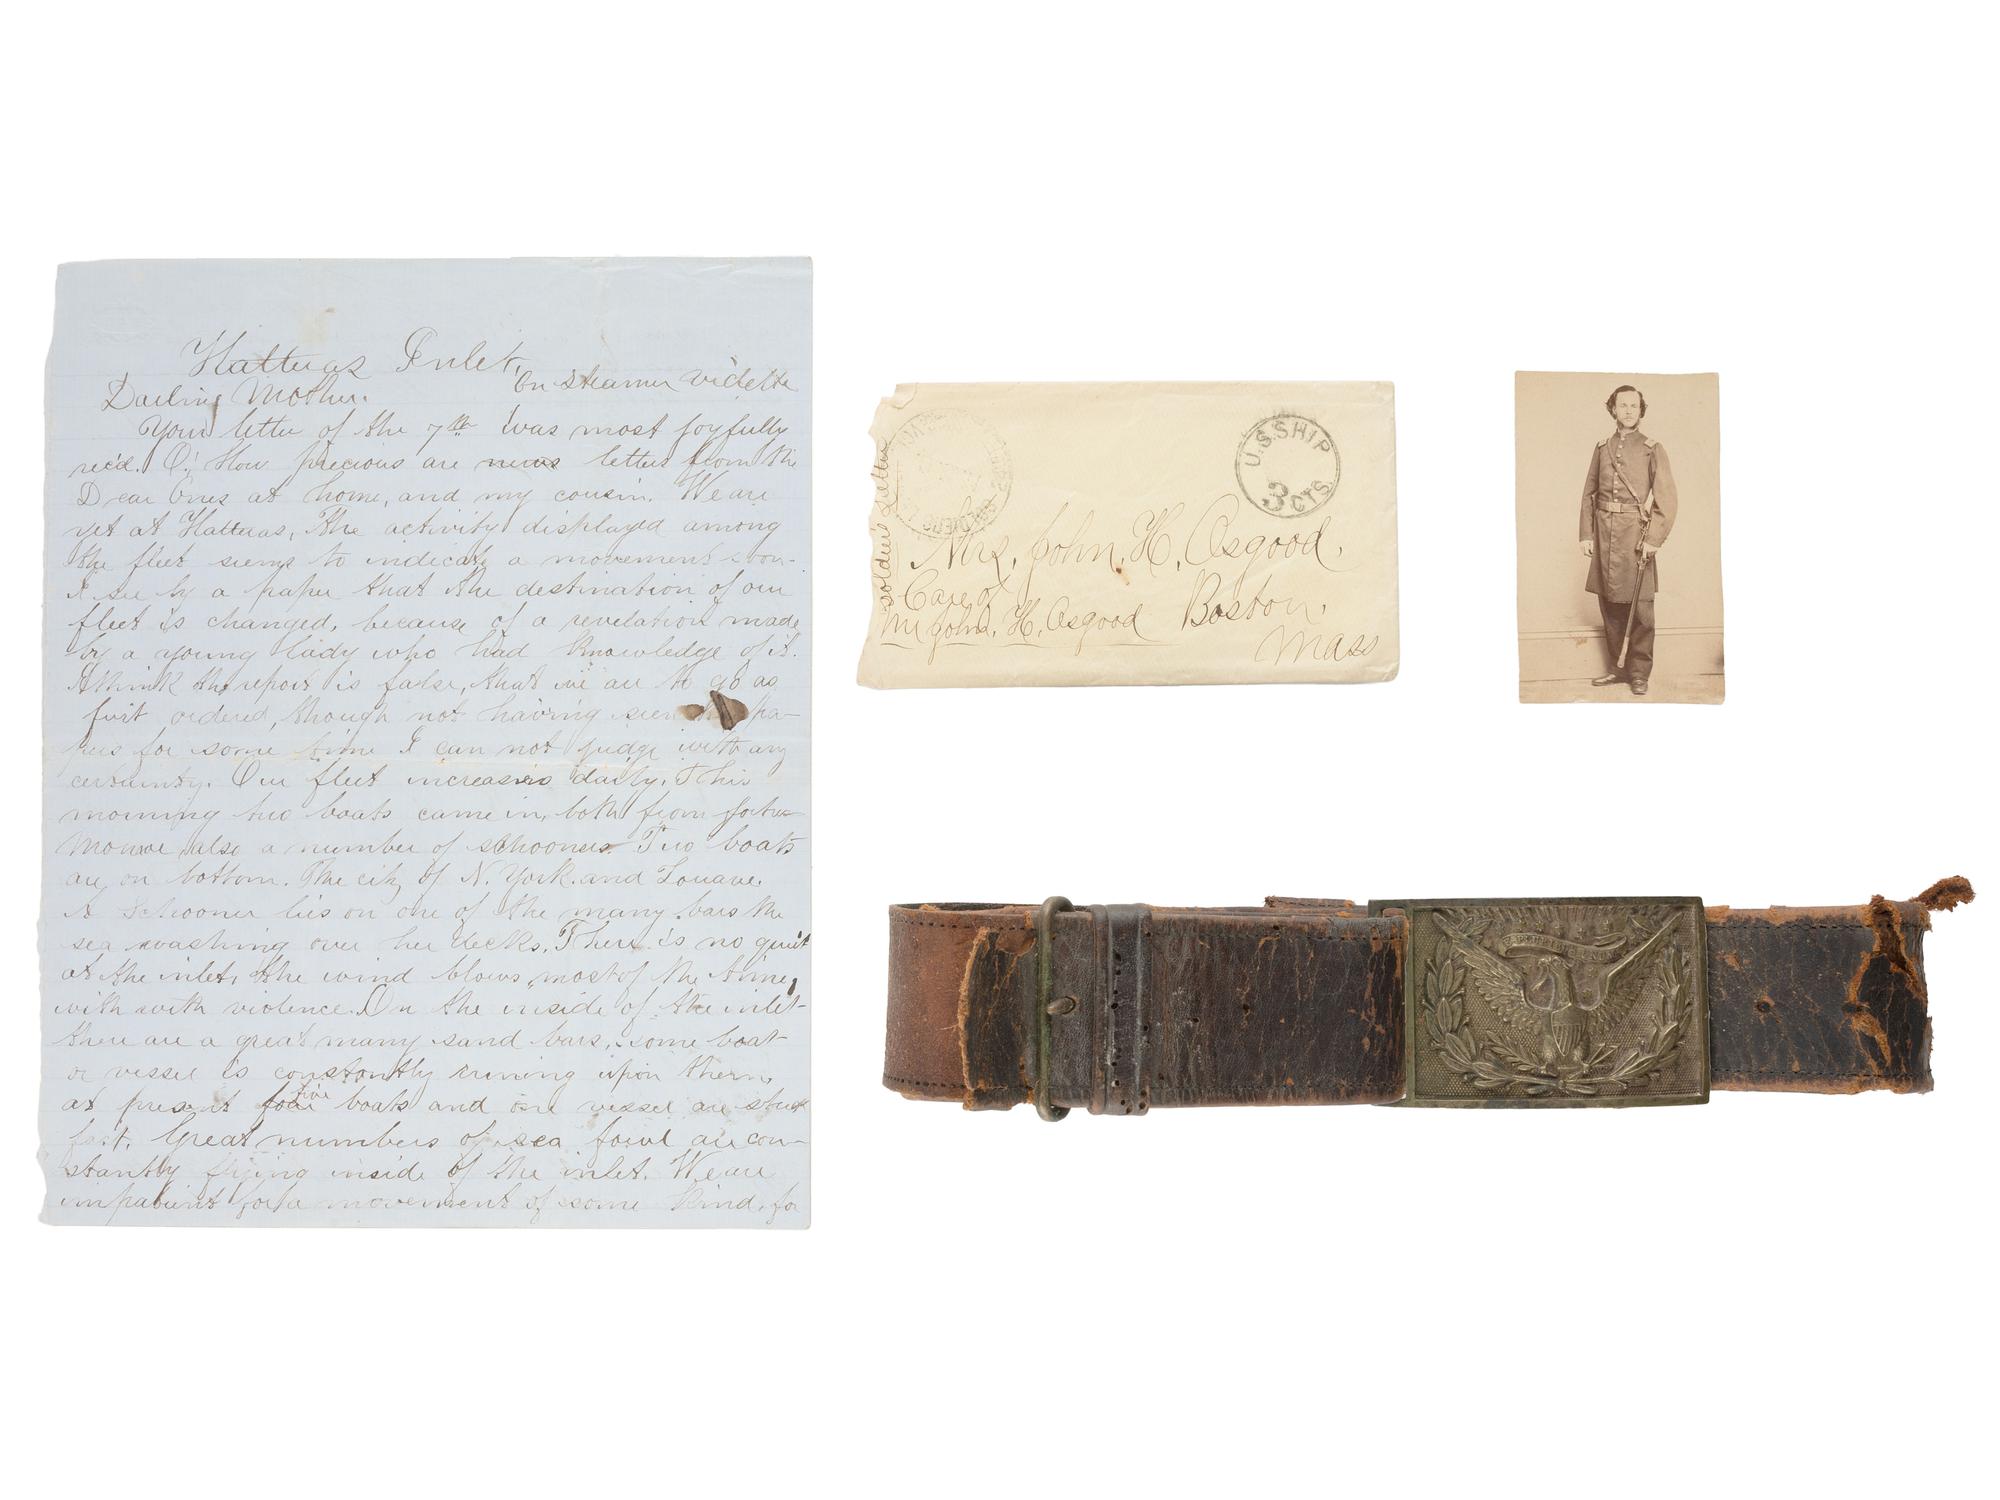 Hatteras Inlet,
On steamer vidette
Darling Mother.
Your letter of the 7th was most joyfully
rec'd. O! How precious are news letters from the
Dear Ones at home, and my cousin. We are
yet at Hatteras, The activity displayed among
the fleet seems to indicate a movement soon.
I see by a paper that the destination of our
fleet is changed, because of a revelation made
by a young lady who had knowledge of it.
I think the report is false, that we are to go as
first ordered, though not having seen the pa-
pers for some time I can not judge with any
certainty. Our fleet increases daily. This
morning two boats came in, both from fortress
Monroe also a number of schooners. Two boats
are on bottom. The city of N. York. and Zouave.
A Schooner lies on one of the many bars the
sea washing over her decks. There is no quiet
at the inlet, the wind blows most of the time,
with with violence. On the inside of the inlet
there are a great many sand bars, some boat
or vessel is constantly runing upon them,
at present four five boats and one vessel are stuck
fast. Great numbers of sea fowl are con-
stantly flying inside of the inlet. We are
impatient for a movement of some kind, for
soldiers letter
U.S. SHIP
3 CTS.
Mrs. John. H. Osgood.
Care of
Mr John. H. Osgood Boston.
Mass
E PLURIBUS UNUM